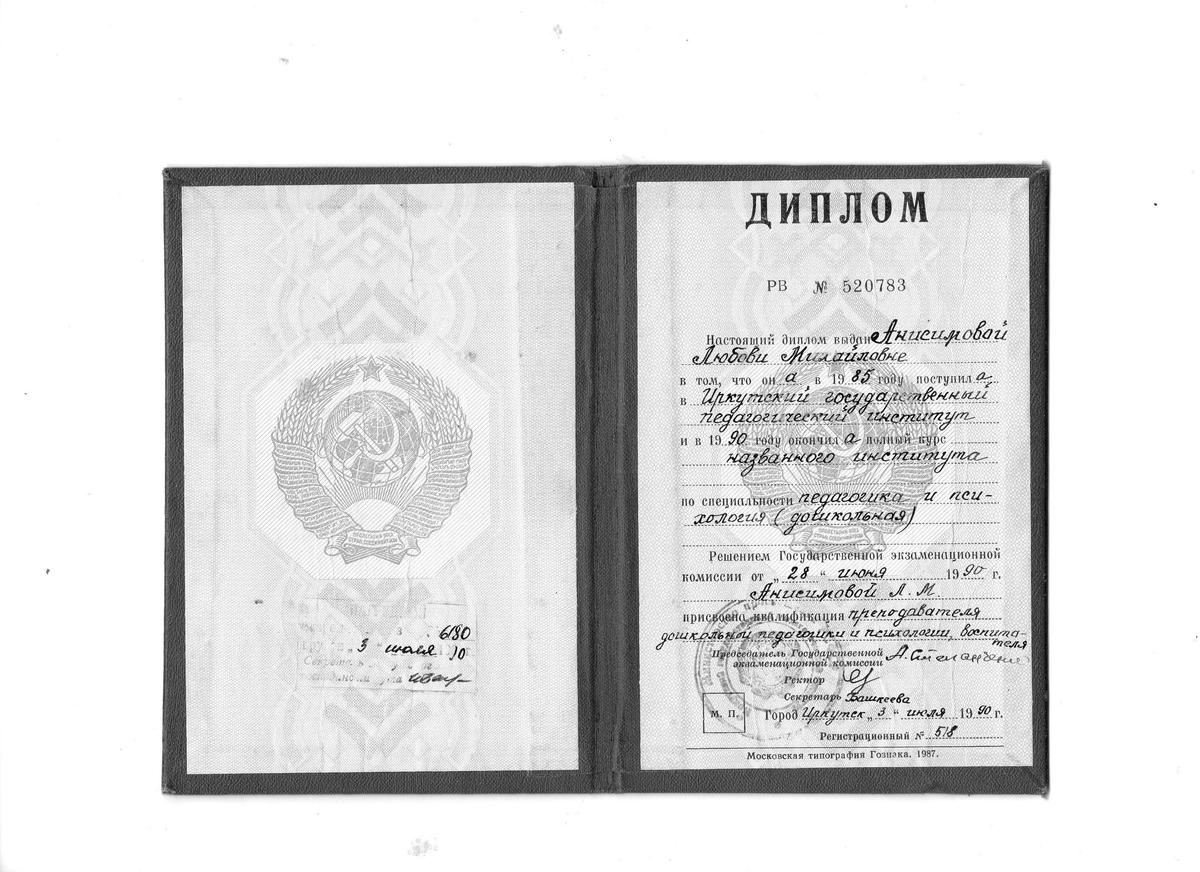 6180
3 июля
ДИПЛОМ
РВ № 520783
Настоящий диплом выдан Анисимовой
Любови Михайловне
в том, что он а в 1985 году поступил а
в Иркутский государственный
педагогический институт
и в 1990 году окончил а полный курс
названного института
по специальности педагогика и пси-
хология (дошкольная)
Решением Государственной экзаменационной
комиссии от „28“ июня 1990 г.
Анисимовой Л. М.
присвоена квалификация преподавателя
дошкольной педагогики и психологии, воспита-
теля
Председатель Государственной
экзаменационной комиссии
Ректор
Секретарь
М. П. Город Иркутск „3“ июля 1990 г.
Регистрационный № 518
Московская типография Гознака. 1987.